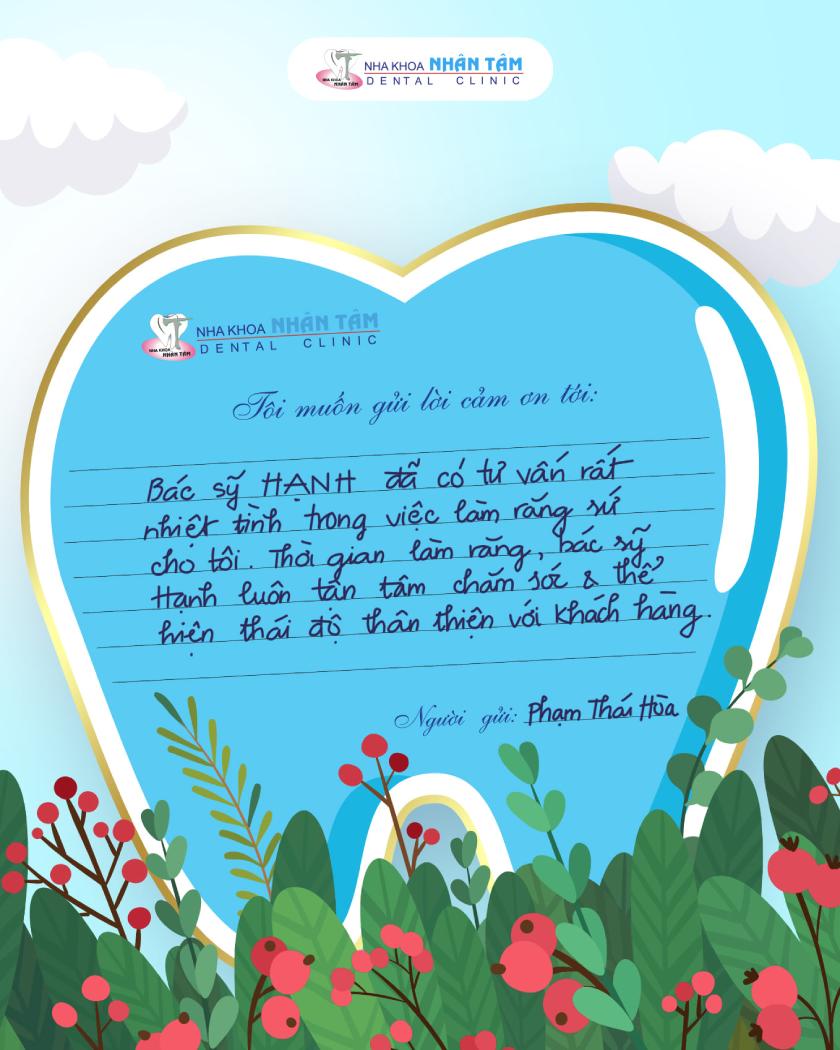 NHA KHOA NHÂN TÂM
DENTAL CLINIC
NHA KHOA NHÂN TÂM
NHA KHOA NHÂN TÂM
DENTAL CLINIC
NHA KHOA NHÂN TÂM
Tôi muốn gửi lời cảm ơn tới:
Bác sỹ HẠNH đã có tư vấn rất
nhiệt tình trong việc làm răng sứ
cho tôi. Thời gian làm răng, bác sỹ
Hạnh luôn tận tâm chăm sóc & thể
hiện thái độ thân thiện với khách hàng.
Người gửi: Phạm Thái Hòa